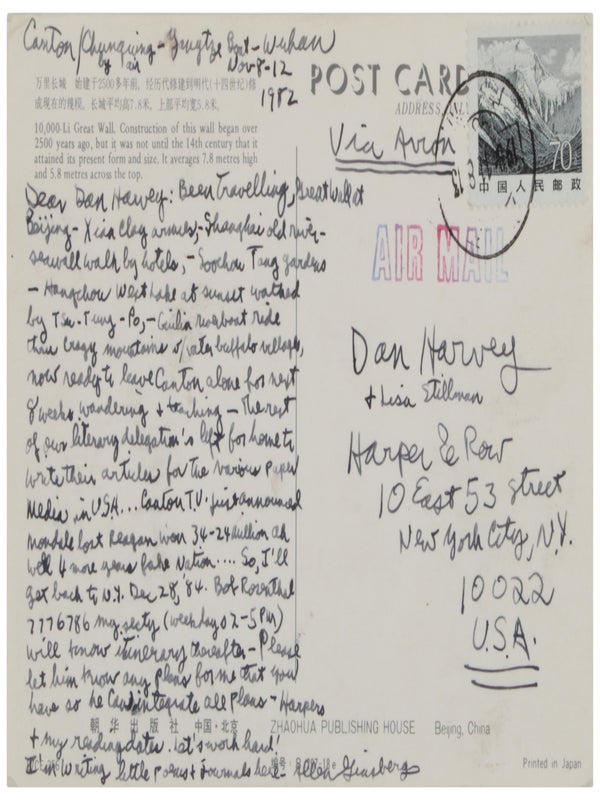 Canton/Chungqing - Yangtze Boat - Wuhan
by air Nov 8-12
1982
万里长城 始建于2500多年前，经历代修建到明代(十四世纪)修
成现在的规模。长城平均高7.8米，上部平均宽5.8米。
10,000-Li Great Wall. Construction of this wall began over
2500 years ago, but it was not until the 14th century that it
attained its present form and size. It averages 7.8 metres high
and 5.8 metres across the top.
Dear Dan Harvey: Been travelling, Great Wall at
Beijing - Xian clay armies, - Shanghai old river-
seawall walk by hotels, - Soochou Tang gardens
- Hangchou West Lake at sunset watched
by Tsu-Tung-Po, - riverboat ride
thru crazy mountains w/water buffalo villages,
now ready to leave Canton alone for next
8 weeks wandering + teaching - The rest
of our literary delegation's left for home to
write their articles for the various Paper
Media in USA... Canton T.V. just announced
Mondale lost Reagan won 34-24 million ah
well 4 more years fake Nation.... So, I'll
get back to N.Y. Dec 28, '84. Bob Rosenthal
7776786 my secty (weekdays 2-5 PM)
will know itinerary thereafter - Please
let him know any plans for me that you
have so he can integrate all plans - Harpers
+ my reading dates. Let's work hard!
I'm writing little poems + journals here - Allen Ginsberg
朝华出版社 中国·北京 ZHAOHUA PUBLISHING HOUSE Beijing, China
编号:
Printed in Japan
POST CARD
ADDRESS ONLY
Via Avion
70
中国人民邮政
AIR MAIL
Dan Harvey
+ Lisa Stillman
Harper & Row
10 East 53 Street
New York City, N.Y.
10022
U.S.A.